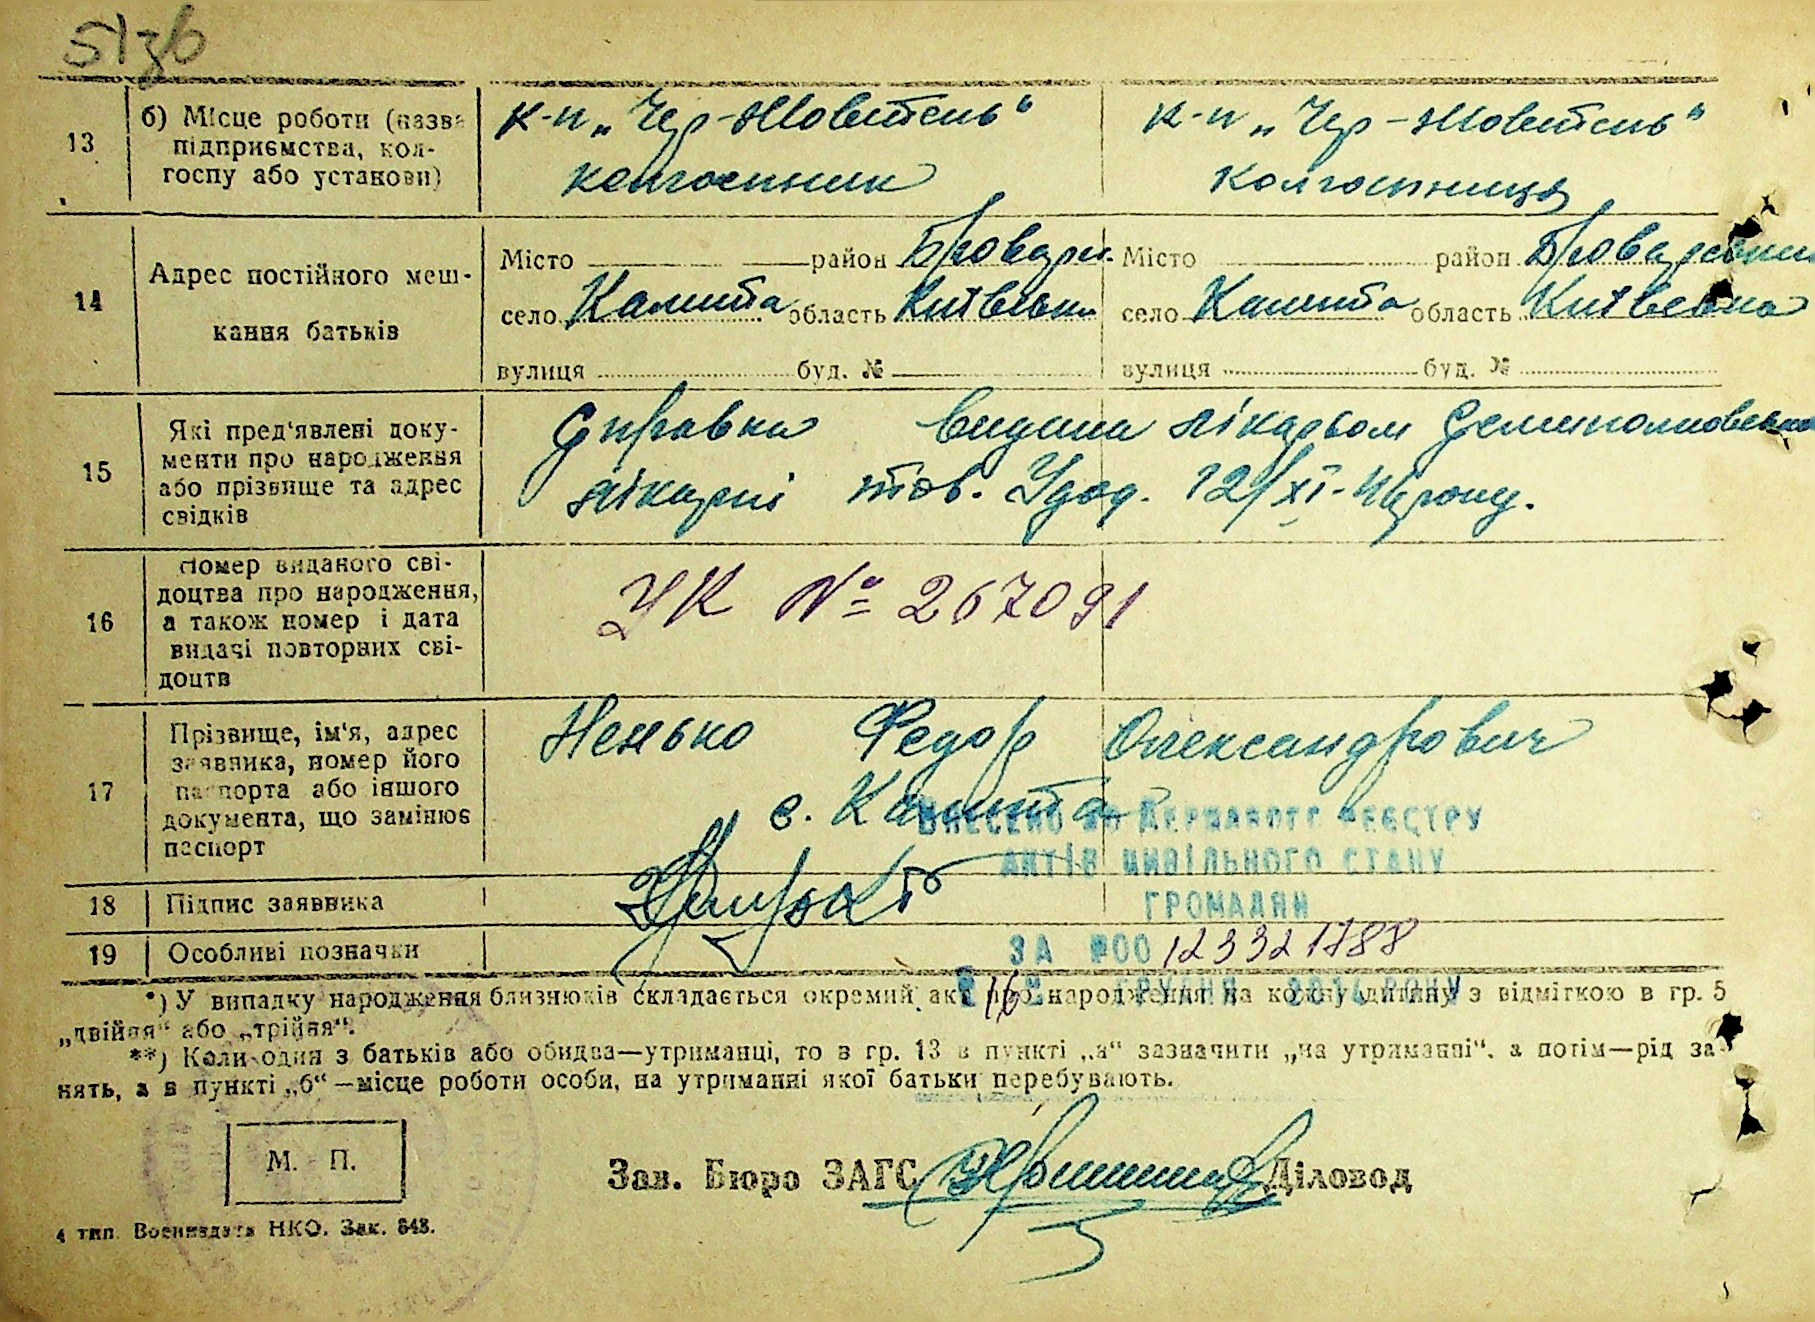 51зв
13 б) Місце роботи (назва підприємства, колгоспу або установи)
к-п „Чер-Жовтень“
колгоспник
к-п „Чер-Жовтень“
колгоспниця
14 Адрес постійного мешкання батьків
Місто район Бровари.
село Калита область Київськ.
вулиця буд. №
Місто район Броварський
село Калита область Київська
вулиця буд. №
15 Які пред‘явлені документи про народження або прізвище та адрес свідків
Справка видана лікарьом Семиполковської
лікарні тов. Удод. 12/XI-
16 Номер виданого свідоцтва про народження, а також номер і дата видачі повторних свідоцтв
УК № 267091
17 Прізвище, ім‘я, адрес заявника, номер його паспорта або іншого документа, що замінює паспорт
Ненько Федор Олександрович
с. Калита
18 Підпис заявника
19 Особливі позначки
ВНЕСЕНО ДО ДЕРЖАВНОГО РЕЄСТРУ
АКТІВ ЦИВІЛЬНОГО СТАНУ
ГРОМАДЯН
ЗА №00 123321788
16 ГРУДНЯ 2014 РОКУ
*) У випадку народження близнюків складається окремий акт про народження на кожну дитину з відміткою в гр. 5
„двійня“ або „трійня“.
**) Коли один з батьків або обидва—утриманці, то в гр. 13 в пункті „а“ зазначити „на утриманні“, а потім—рід за-
нять, а в пункті „б“—місце роботи особи, на утриманні якої батьки перебувають.
М. П.
Зав. Бюро ЗАГС Діловод
4 тип. Воениздата НКО. Зак. 648.